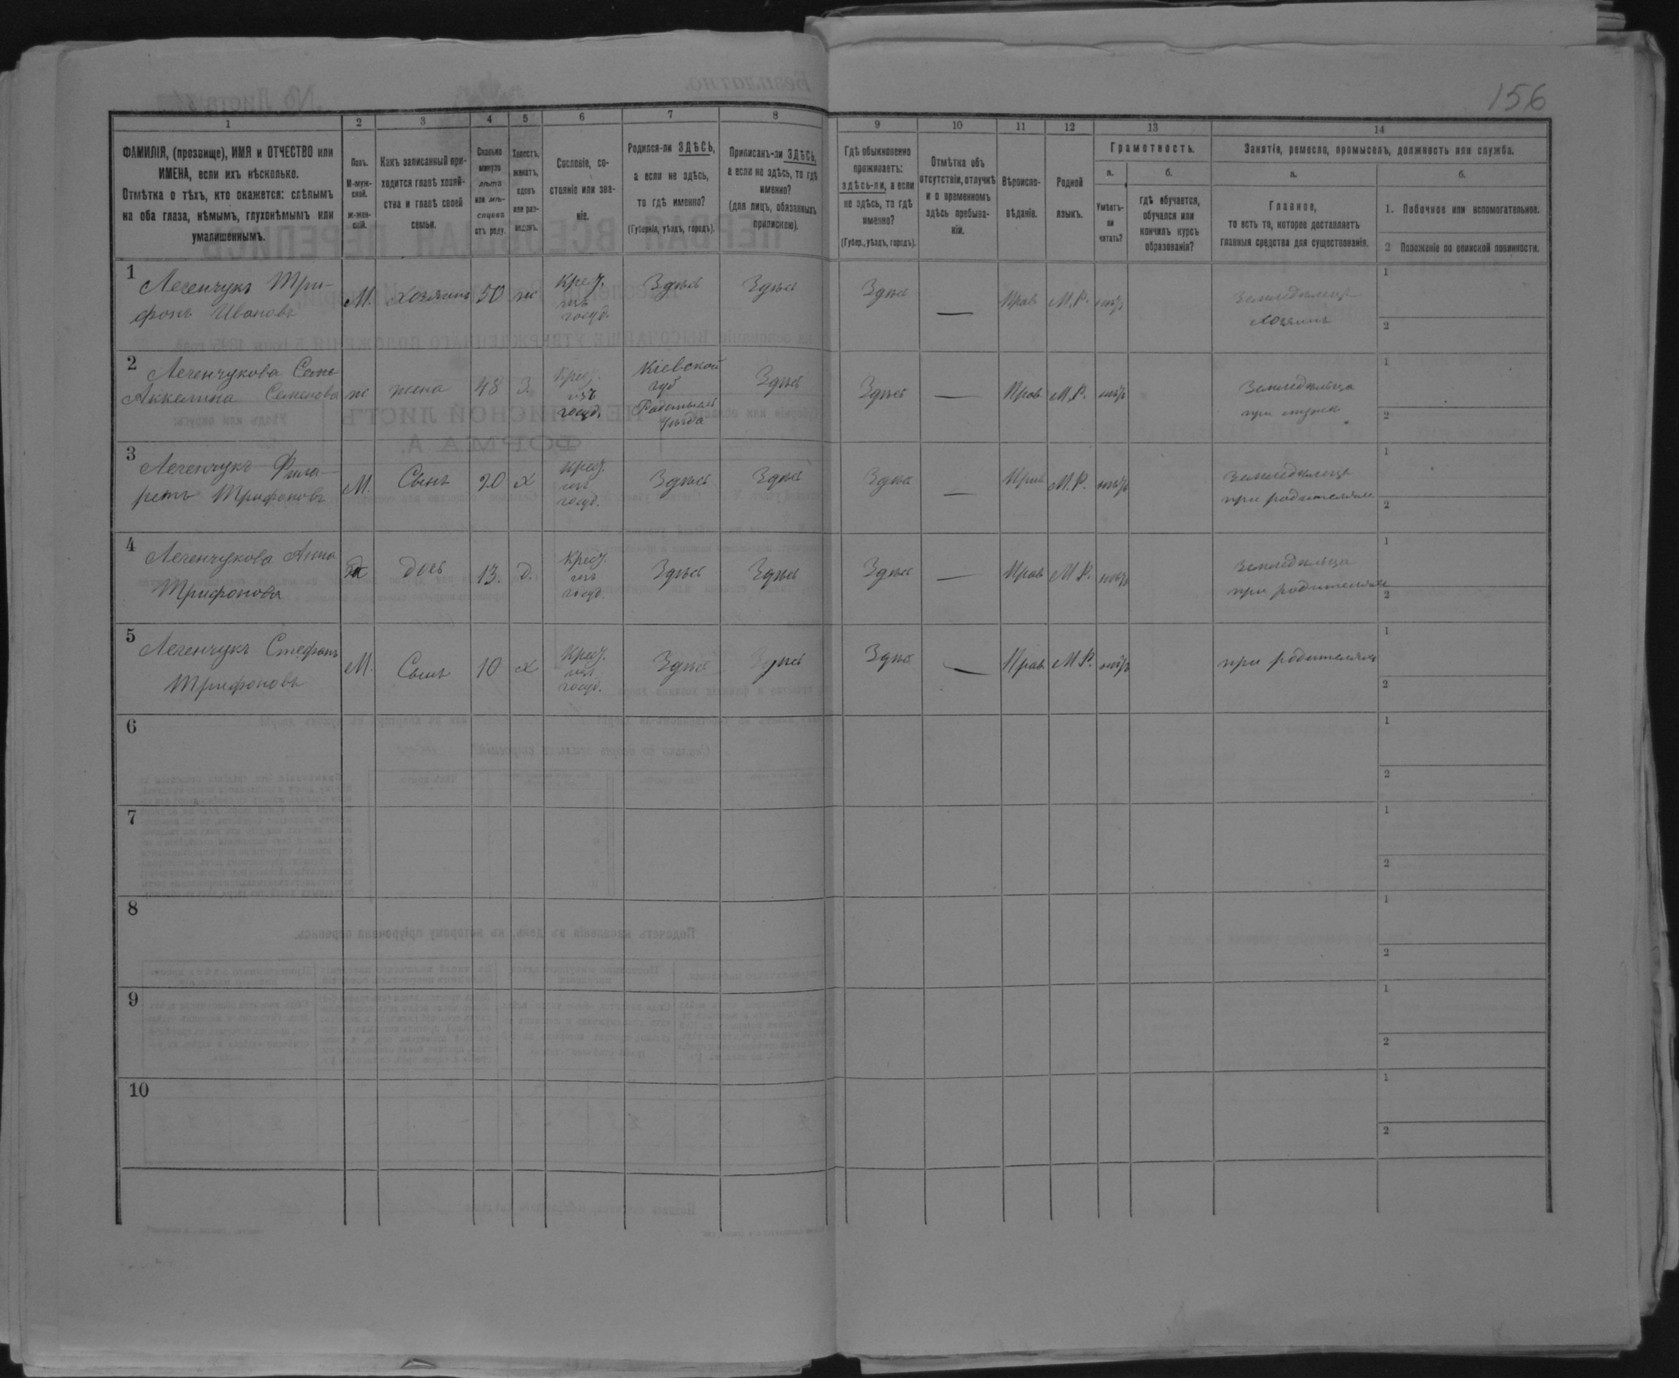 156
1
2
3
4
5
6
7
8
9
10
11
12
13
14
ФАМИЛІЯ, (прозвище), ИМЯ и ОТЧЕСТВО или
ИМЕНА, если ихъ нѣсколько.
Отмѣтка о тѣхъ, кто окажется: слѣпымъ
на оба глаза, нѣмымъ, глухонѣмымъ или
умалишеннымъ.
Полъ.
М-муж-
ской.
ж-жен-
скій.
Какъ записанный при-
ходится главѣ хозяй-
ства и главѣ своей
семьи.
Сколько
минуло
лѣтъ
или мѣ-
сяцевъ
отъ роду.
Холостъ,
женатъ,
вдовъ
или раз-
веденъ.
Сословіе, со-
стояніе или зва-
ніе.
Родился-ли ЗДѢСЬ,
а если не здѣсь,
то гдѣ именно?
(Губернія, уѣздъ, городъ).
Приписанъ-ли ЗДѢСЬ,
а если не здѣсь, то гдѣ
именно?
(для лицъ, обязанныхъ
припискою).
Гдѣ обыкновенно
проживаетъ:
здѣсь-ли, а если
не здѣсь, то гдѣ
именно?
(Губер., уѣздъ, городъ).
Отмѣтка объ
отсутствіи, отлучкѣ
и о временномъ
здѣсь пребыва-
ніи.
Вѣроиспо-
вѣданіе.
Родной
языкъ.
Грамотность.
а.
Умѣетъ-
ли
читать?
б.
гдѣ обучается,
обучался или
кончилъ курсъ
образованія?
Занятіе, ремесло, промыселъ, должность или служба.
а.
Главное,
то есть то, которое доставляетъ
главныя средства для существованія.
б.
1. Побочное или вспомогательное.
2 Положеніе по воинской повинности.
1
Легенчукъ Три-
фонъ Ивановъ
М.
хозяинъ
50
ж
Крест.
изъ
госуд.
Здѣсь
Здѣсь
Здѣсь
—
Прав
М.Р.
нѣтъ
Земледѣлецъ
хозяинъ
1
2
2
Легенчукова
Аккелина Семенова
ж
жена
48
з.
Крест.
изъ
госуд.
Кіевской
губ
Радомысль
уѣзда
Здѣсь
Здѣсь
—
Прав
М.Р.
нѣтъ
Земледѣльца
при мужѣ
1
2
3
Легенчукъ Фила-
ретъ Трифоновъ
М
Сынъ
20
х
Крест.
изъ
госуд.
Здѣсь
Здѣсь
Здѣсь
—
Прав
М.Р.
нѣтъ
Земледѣлецъ
при родителяхъ
1
2
4
Легенчукова Анна
Трифонова
Ж
дочь
13.
д.
Крест.
изъ
госуд.
Здѣсь
Здѣсь
Здѣсь
—
Прав
М.Р.
нѣтъ
Земледѣльца
при родителяхъ
1
2
5
Легенчукъ Стефанъ
Трифоновъ
М.
Сынъ
10
х
Крест.
изъ
госуд.
Здѣсь
Здѣсь
Здѣсь
—
Прав
М.Р.
нѣтъ
при родителяхъ
1
2
6
1
2
7
1
2
8
1
2
9
1
2
10
1
2